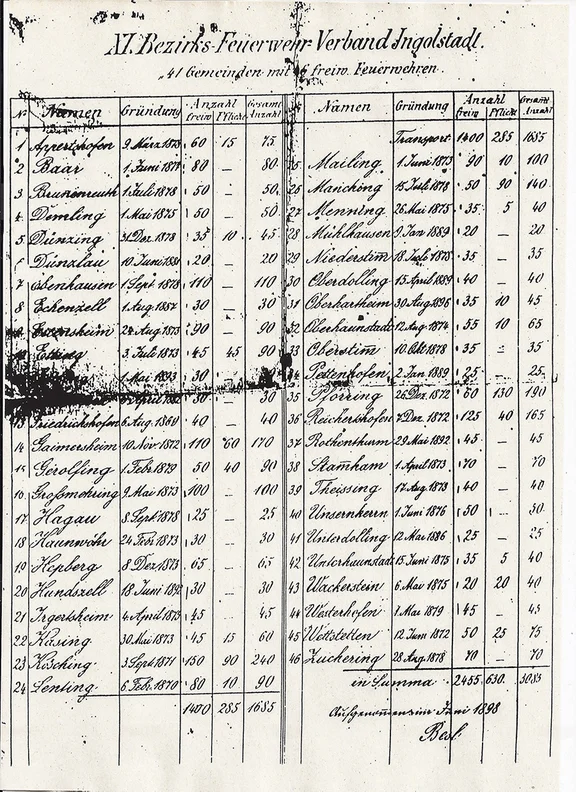 XI. Bezirks-Feuerwehr Verband Ingolstadt.
41 Gemeinden mit 46 freiw. Feuerwehren.
No Namen Gründung Anzahl freiw. Pflicht Gesamt Anzahl
1 Appertshofen 9 März 1878 60 15 75
2 Baar 1 Juni 1871 80 – 80
3 Brunnenreuth 1 Juli 1878 50 – 50
4 Demling 1 Mai 1875 50 – 50
5 Dünzing 31 Dez. 1878 35 10 45
6 Dünzlau 10 Juni 1881 20 – 20
7 Ebenhausen 1 Sept. 1878 110 – 110
8 Echenzell 1 Aug 1887 30 30
24 Aug 1873 90 – 90
3 Juli 1873 45 45 90
1 Mai 1893 30 –
30 30
13 Friedrichshofen 6 Aug. 1869 40 – 40
14 Gaimersheim 10 Nov. 1872 110 60 170
15 Gerolfing 1 Febr 1879 50 40 90
16 Großmehring 9 Mai 1873 100 – 100
17 Hagau 8 Sept 1878 25 – 25
18 Haunwöhr 24 Febr 1873 30 – 30
19 Hepberg 8 Dez 1873 65 – 65
20 Hundszell 18 Juni 30 – 30
21 Irgertsheim 4 April 1875 45 – 45
22 Kasing 30 Mai 1873 45 15 60
23 Kösching 3 Sept 1871 150 90 240
24 Lenting 6 Febr. 1870 80 10 90
1400 285 1685
Namen Gründung Anzahl freiw Pflicht Gesamt Anzahl
Transport 1400 285 1685
25 Mailing 1 Juni 1873 90 10 100
26 Manching 15 Juli 1878 50 90 140
27 Menning 26 Mai 1875 35 5 40
28 Mühlhausen 9 Jan 1889 20 – 20
29 Niederstim 18 Juli 1878 35 – 35
30 Oberdolling 15 April 1889 40 – 40
31 Oberhartheim 30 Aug 1896 35 10 45
32 Oberhaunstadt 12 Aug 1874 55 10 65
33 Oberstim 10 Okt 1878 35 – 35
34 Pettenhofen 2 Jan 1889 25 – 25
35 Pförring 26 Dez 1872 60 130 190
36 Reichertshofen 7 Dez 1872 125 40 165
37 Rothenthurm 29 Mai 1892 45 – 45
38 Stamham 1 April 1873 70 – 70
39 Theissing 17 Aug 1879 40 – 40
40 Unsernherrn 1 Juni 1876 50 – 50
41 Unterdolling 12 Mai 1886 25 – 25
42 Unterhaunstadt 15 Juni 1875 35 5 40
43 Wackerstein 6 Mai 1875 20 20 40
44 Westerhofen 1 Mai 1879 45 – 45
45 Wettstetten 12 Juni 1872 50 25 75
46 Zuchering 28 Aug 1878 70 – 70
in Summa 2455 630 3085
Aufgenommen im Juni 1898